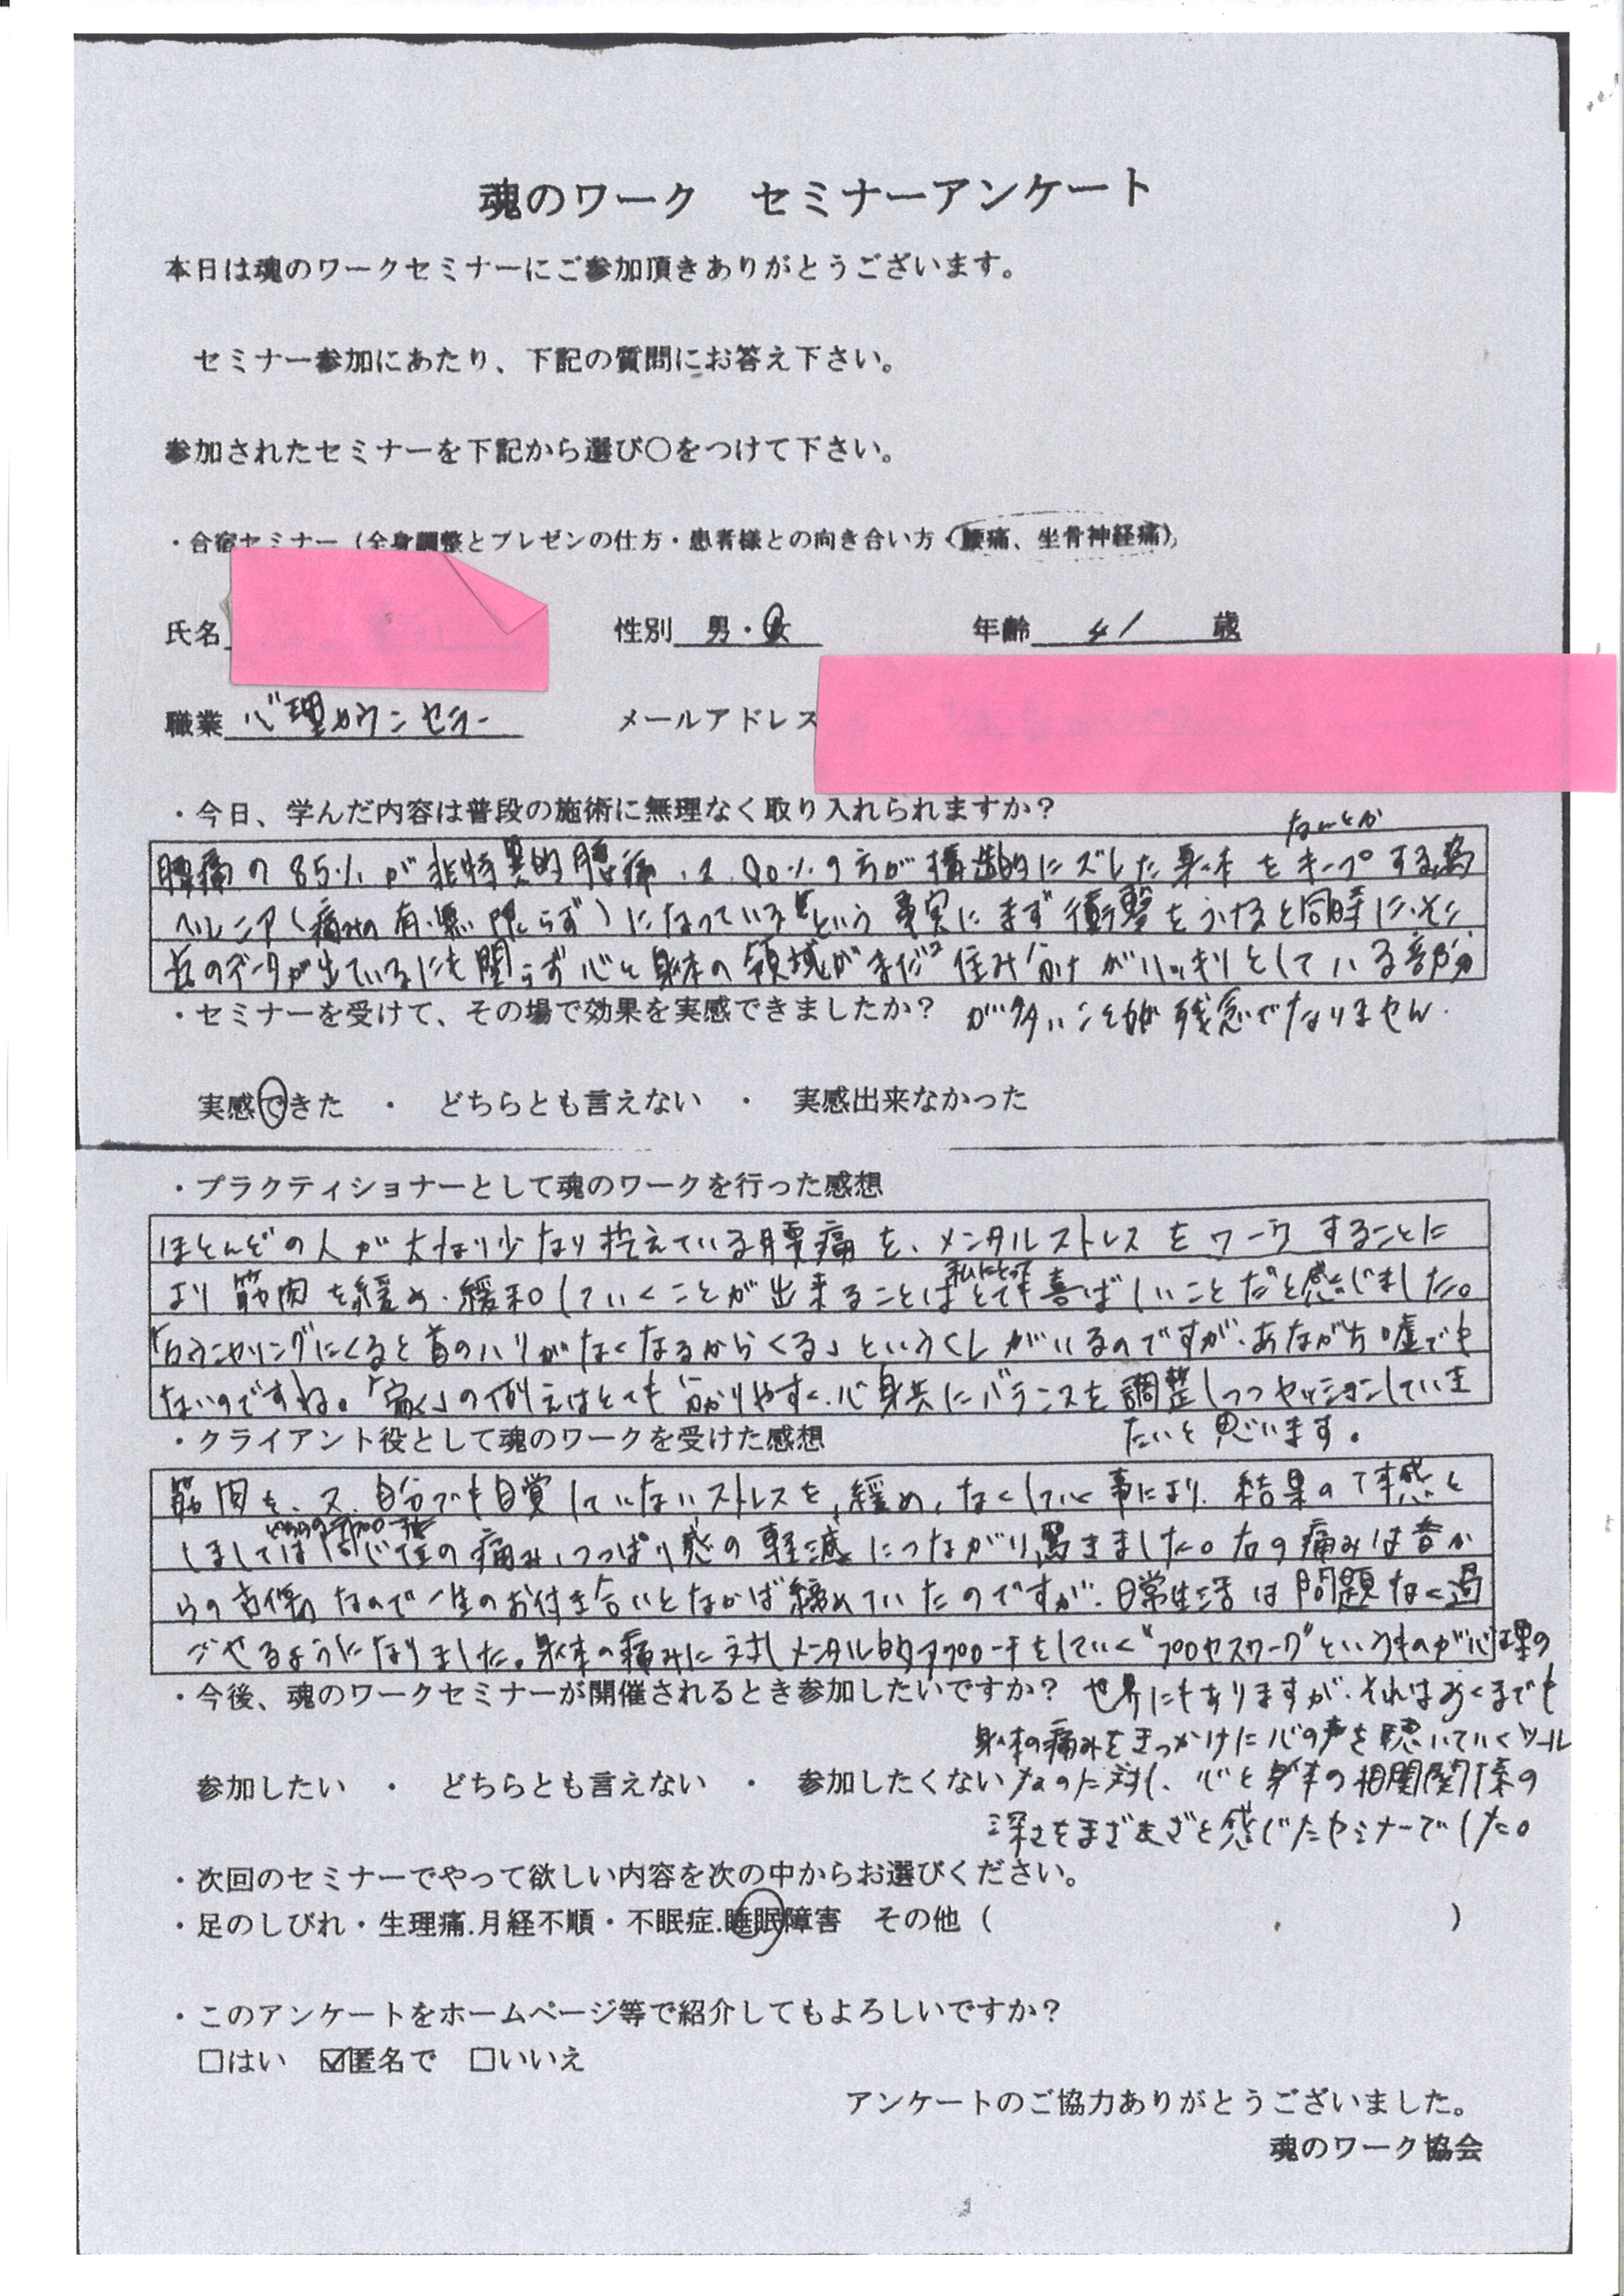 魂のワーク セミナーアンケート
本日は魂のワークセミナーにご参加頂きありがとうございます。
セミナー参加にあたり、下記の質問にお答え下さい。
参加されたセミナーを下記から選び〇をつけて下さい。
・合宿セミナー（全身調整とプレゼンの仕方・患者様との向き合い方（腰痛、坐骨神経痛）
氏名 性別 男・女 年齢 41 歳
職業 心理カウンセラー メールアドレス
・今日、学んだ内容は普段の施術に無理なく取り入れられますか？
なんとか
腰痛の85%が非特異的腰痛、又、90%の方が構造的にズレた身体をキープする為
ヘルニア（痛みの有無限らず）になっているという事実にまず衝撃をうけると同時に、
のデータが出ているにも関らず心と身体の領域がまだ住み分けがハッキリとしている部分
が多いことが残念でなりません。
・セミナーを受けて、その場で効果を実感できましたか？
実感できた ・ どちらとも言えない ・ 実感出来なかった
・プラクティショナーとして魂のワークを行った感想
ほとんどの人が大なり少なり抱えている腰痛を、メンタルストレスをワークすることに
私にとって
より筋肉を緩め、緩和していくことが出来ることはとても喜ばしいことだと感じました。
「カウンセリングにくると首のハリがなくなるからくる」という がいるのですが、あながち嘘でも
ないのですね。「 」の例えはとても分かりやすく、心身共にバランスを調整しつつセッションしていき
たいと思います。
・クライアント役として魂のワークを受けた感想
筋肉を、又、自分でも自覚していないストレスを、緩め、なくしていく事により、結果の体感と
どちらのアプローチも
しましては同じ位の痛み、つっぱり感の軽減につながり、驚きました。右の痛みは昔か
らの古傷なので一生のお付き合いとなかば諦めていたのですが、日常生活は問題なく過
ごせるようになりました。身体の痛みに対しメンタル的アプローチをしていく"プロセスワーク"というものが心理の
世界にもありますが、それはあくまでも
身体の痛みをきっかけに心の声を聴いていくツール
なのに対し、心と身体の相関関係の
深さをまざまざと感じたセミナーでした。
・今後、魂のワークセミナーが開催されるとき参加したいですか？
参加したい ・ どちらとも言えない ・ 参加したくない
・次回のセミナーでやって欲しい内容を次の中からお選びください。
・足のしびれ・生理痛.月経不順・不眠症.睡眠障害 その他（ ）
・このアンケートをホームページ等で紹介してもよろしいですか？
□はい ☑匿名で □いいえ
アンケートのご協力ありがとうございました。
魂のワーク協会